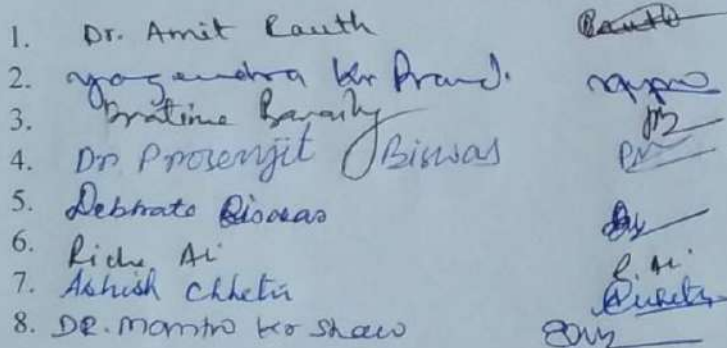 1. Dr. Amit Rauth Rauth
2. Yogendra Kr Prand.
3. Pratima Baraily
4. Dr Prosenjit Biswas
5. Debrato Biswas
6. Richa Ali R. Ali
7. Ashish Chhetri Chhetri
8. DR. Kr Shaw